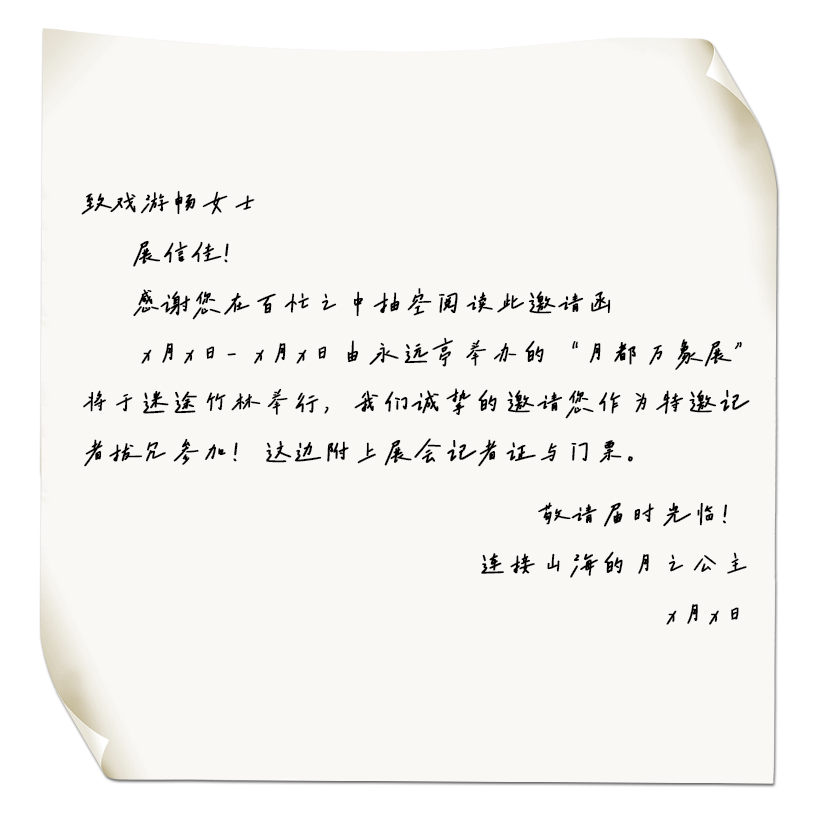 致戏游畅女士
展信佳!
感谢您在百忙之中抽空阅读此邀请函
x月x日-x月x日由永远亭举办的“月都万象展”
将于迷途竹林举行,我们诚挚的邀请您作为特邀记
者拔冗参加!这边附上展会记者证与门票。
敬请届时光临!
连接山海的月之公主
x月x日